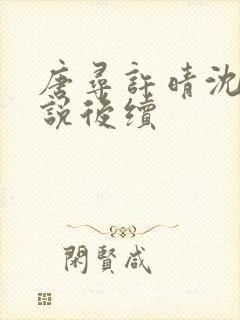 唐尋許晴沈
說後續
閑賢咸